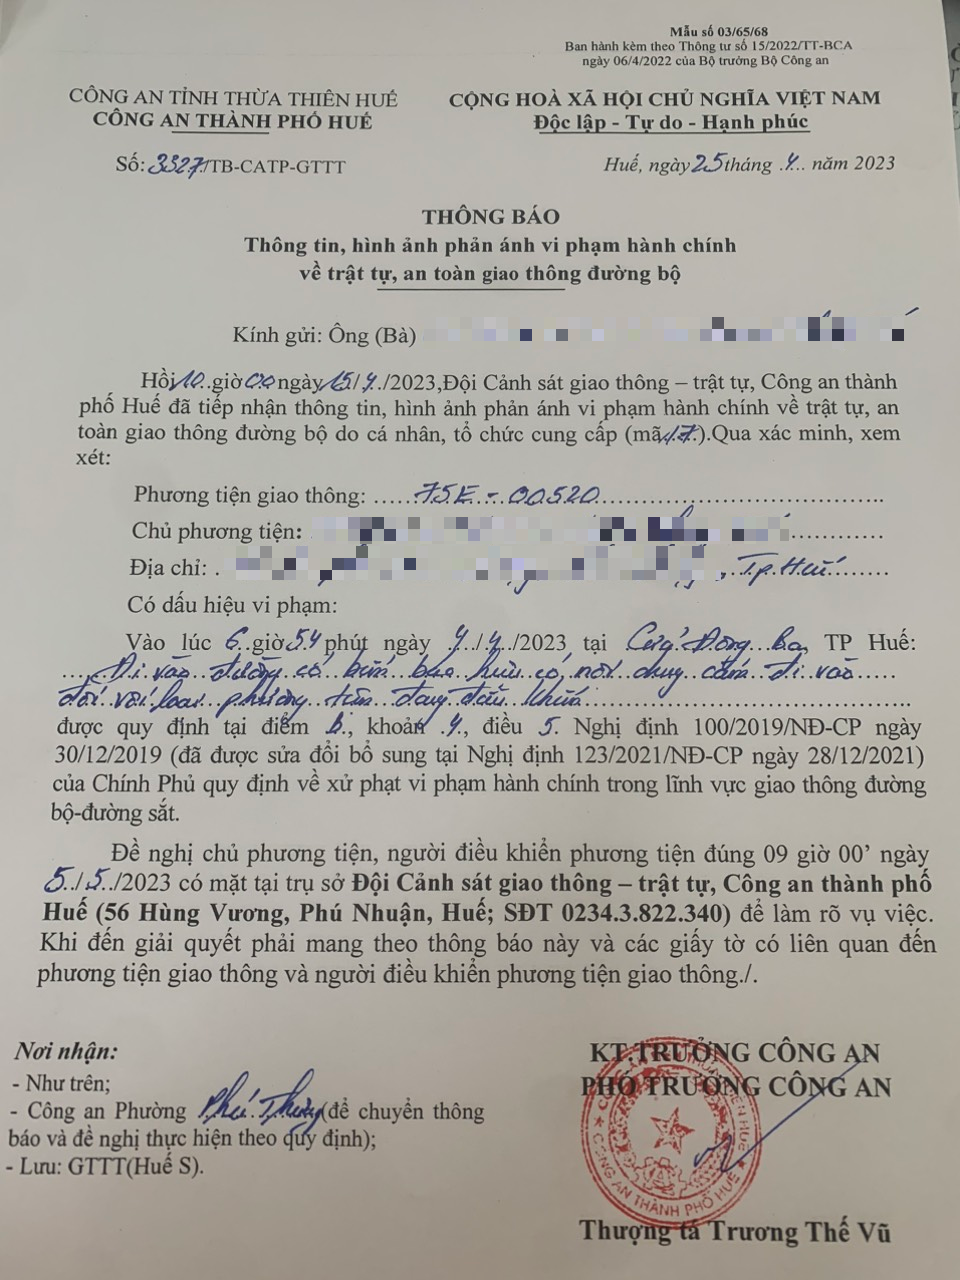 Mẫu số 03/65/68
Ban hành kèm theo Thông tư số 15/2022/TT-BCA
ngày 06/4/2022 của Bộ trưởng Bộ Công an
CÔNG AN TỈNH THỪA THIÊN HUẾ
CÔNG AN THÀNH PHỐ HUẾ
CỘNG HOÀ XÃ HỘI CHỦ NGHĨA VIỆT NAM
Độc lập - Tự do - Hạnh phúc
Số: 3327/TB-CATP-GTTT
Huế, ngày 25 tháng .4... năm 2023
THÔNG BÁO
Thông tin, hình ảnh phản ánh vi phạm hành chính
về trật tự, an toàn giao thông đường bộ
Kính gửi: Ông (Bà)
Hồi 10..giờ 00 ngày 15/4/2023,Đội Cảnh sát giao thông – trật tự, Công an thành
phố Huế đã tiếp nhận thông tin, hình ảnh phản ánh vi phạm hành chính về trật tự, an
toàn giao thông đường bộ do cá nhân, tổ chức cung cấp (mã 47).Qua xác minh, xem
xét:
Phương tiện giao thông: ......75E - 00520......
Chủ phương tiện:
Địa chỉ: . , Tp. Huế
Có dấu hiệu vi phạm:
Vào lúc 6 giờ 54 phút ngày 4/4/2023 tại Cửa Đông Ba, TP Huế:
Đi vào đường có biển báo hiệu có nội dung cấm đi vào
đối với loại phương tiện đang điều khiển
được quy định tại điểm b, khoản 4, điều 5 Nghị định 100/2019/NĐ-CP ngày
30/12/2019 (đã được sửa đổi bổ sung tại Nghị định 123/2021/NĐ-CP ngày 28/12/2021)
của Chính Phủ quy định về xử phạt vi phạm hành chính trong lĩnh vực giao thông đường
bộ-đường sắt.
Đề nghị chủ phương tiện, người điều khiển phương tiện đúng 09 giờ 00’ ngày
5../5../2023 có mặt tại trụ sở Đội Cảnh sát giao thông – trật tự, Công an thành phố
Huế (56 Hùng Vương, Phú Nhuận, Huế; SĐT 0234.3.822.340) để làm rõ vụ việc.
Khi đến giải quyết phải mang theo thông báo này và các giấy tờ có liên quan đến
phương tiện giao thông và người điều khiển phương tiện giao thông./.
Nơi nhận:
- Như trên;
- Công an Phường Phú Thượng (để chuyển thông
báo và đề nghị thực hiện theo quy định);
- Lưu: GTTT(Huế S).
KT.TRƯỞNG CÔNG AN
PHÓ TRƯỞNG CÔNG AN
CÔNG AN THÀNH PHỐ HUẾ
Thượng tá Trương Thế Vũ